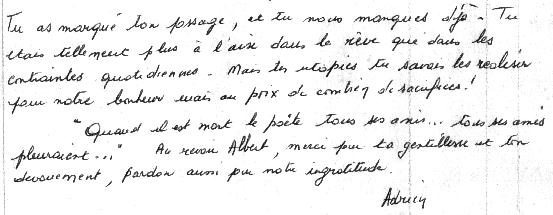 Tu as marqué ton passage, et tu nous manques déjà. Tu
étais tellement plus à l'aise dans le rêve que dans les
contraintes quotidiennes. Mais tes utopies tu savais les réaliser
pour notre bonheur mais au prix de combien de sacrifices !
"Quand il est mort le poète tous ses amis... tous ses amis
pleuraient..." Au revoir Albert, merci pour ta gentillesse et ton
dévouement, pardon aussi pour notre ingratitude.